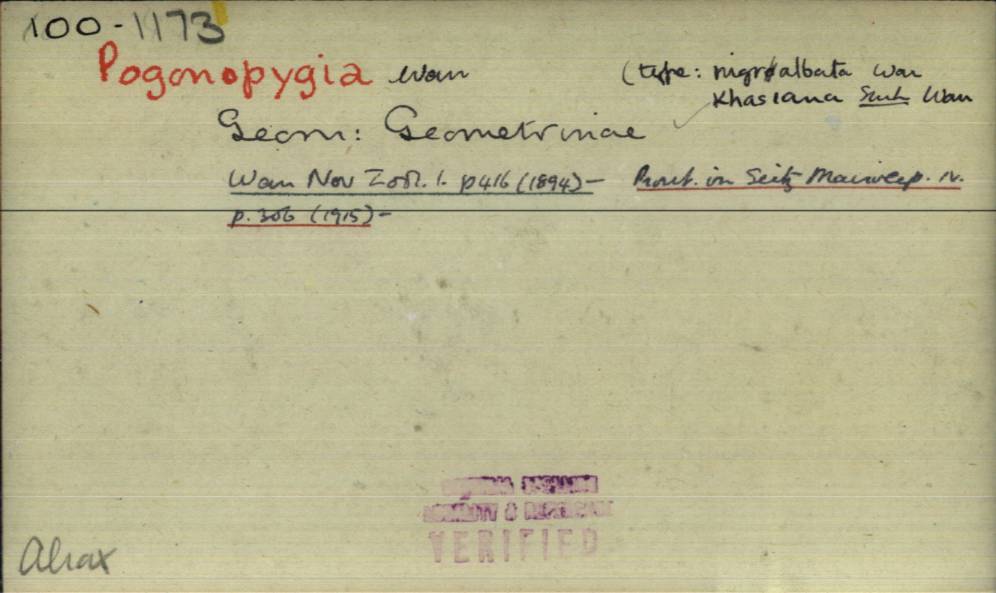 100-1173
Pogonopygia War (type: nigralbata War
Khasiana War
Geom: Geometrinae
War Nov Zool. 1. p416 (1894)— Prout. in Seitz Macrolep. iv.
p. 306 (1915)—
VERIFIED